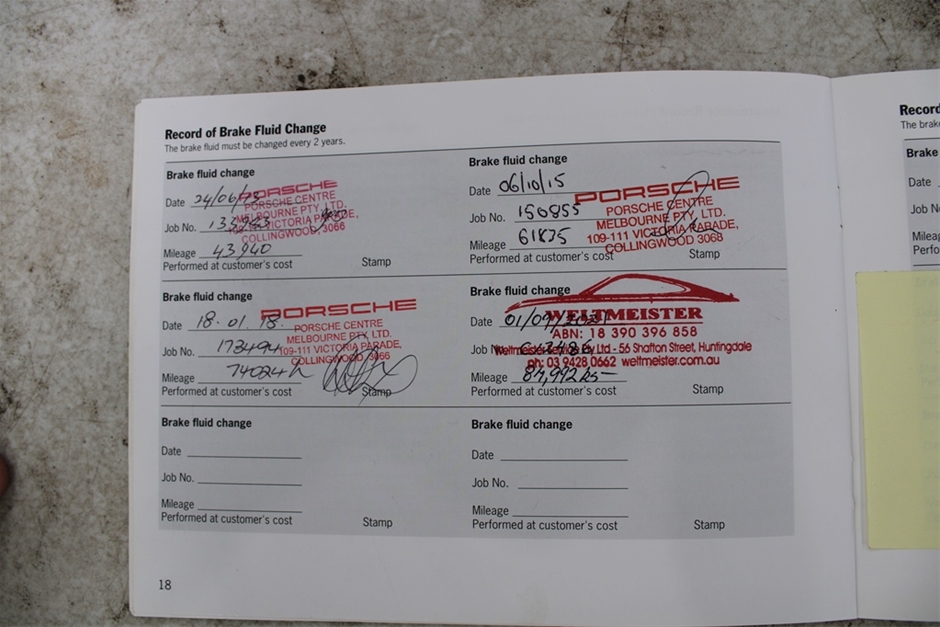 Record of Brake Fluid Change
The brake fluid must be changed every 2 years.
Brake fluid change
Date 24/06/13
PORSCHE
PORSCHE CENTRE
MELBOURNE PTY, LTD.
109-111 VICTORIA PARADE,
COLLINGWOOD, 3066
Job No.
Mileage 43940
Performed at customer's cost Stamp
Brake fluid change
Date 06/10/15
PORSCHE
PORSCHE CENTRE
MELBOURNE PTY, LTD.
109-111 VICTORIA PARADE,
COLLINGWOOD 3066
Job No. 150855
Mileage 61835
Performed at customer's cost Stamp
Brake fluid change
Date 18.01.18.
PORSCHE
PORSCHE CENTRE
MELBOURNE PTY, LTD.
109-111 VICTORIA PARADE,
COLLINGWOOD 3066
Job No. 173494
Mileage 74024
Performed at customer's cost Stamp
Brake fluid change
Date
WELTMEISTER
ABN: 18 390 396 858
Pty Ltd - 56 Shafton Street, Huntingdale
ph: 03 9428 0662 weltmeister.com.au
Job No.
Mileage
Performed at customer's cost Stamp
Brake fluid change
Date
Job No.
Mileage
Performed at customer's cost Stamp
Brake fluid change
Date
Job No.
Mileage
Performed at customer's cost Stamp
18
Record
The brake
Brake
Date
Job No
Mileage
Perfo